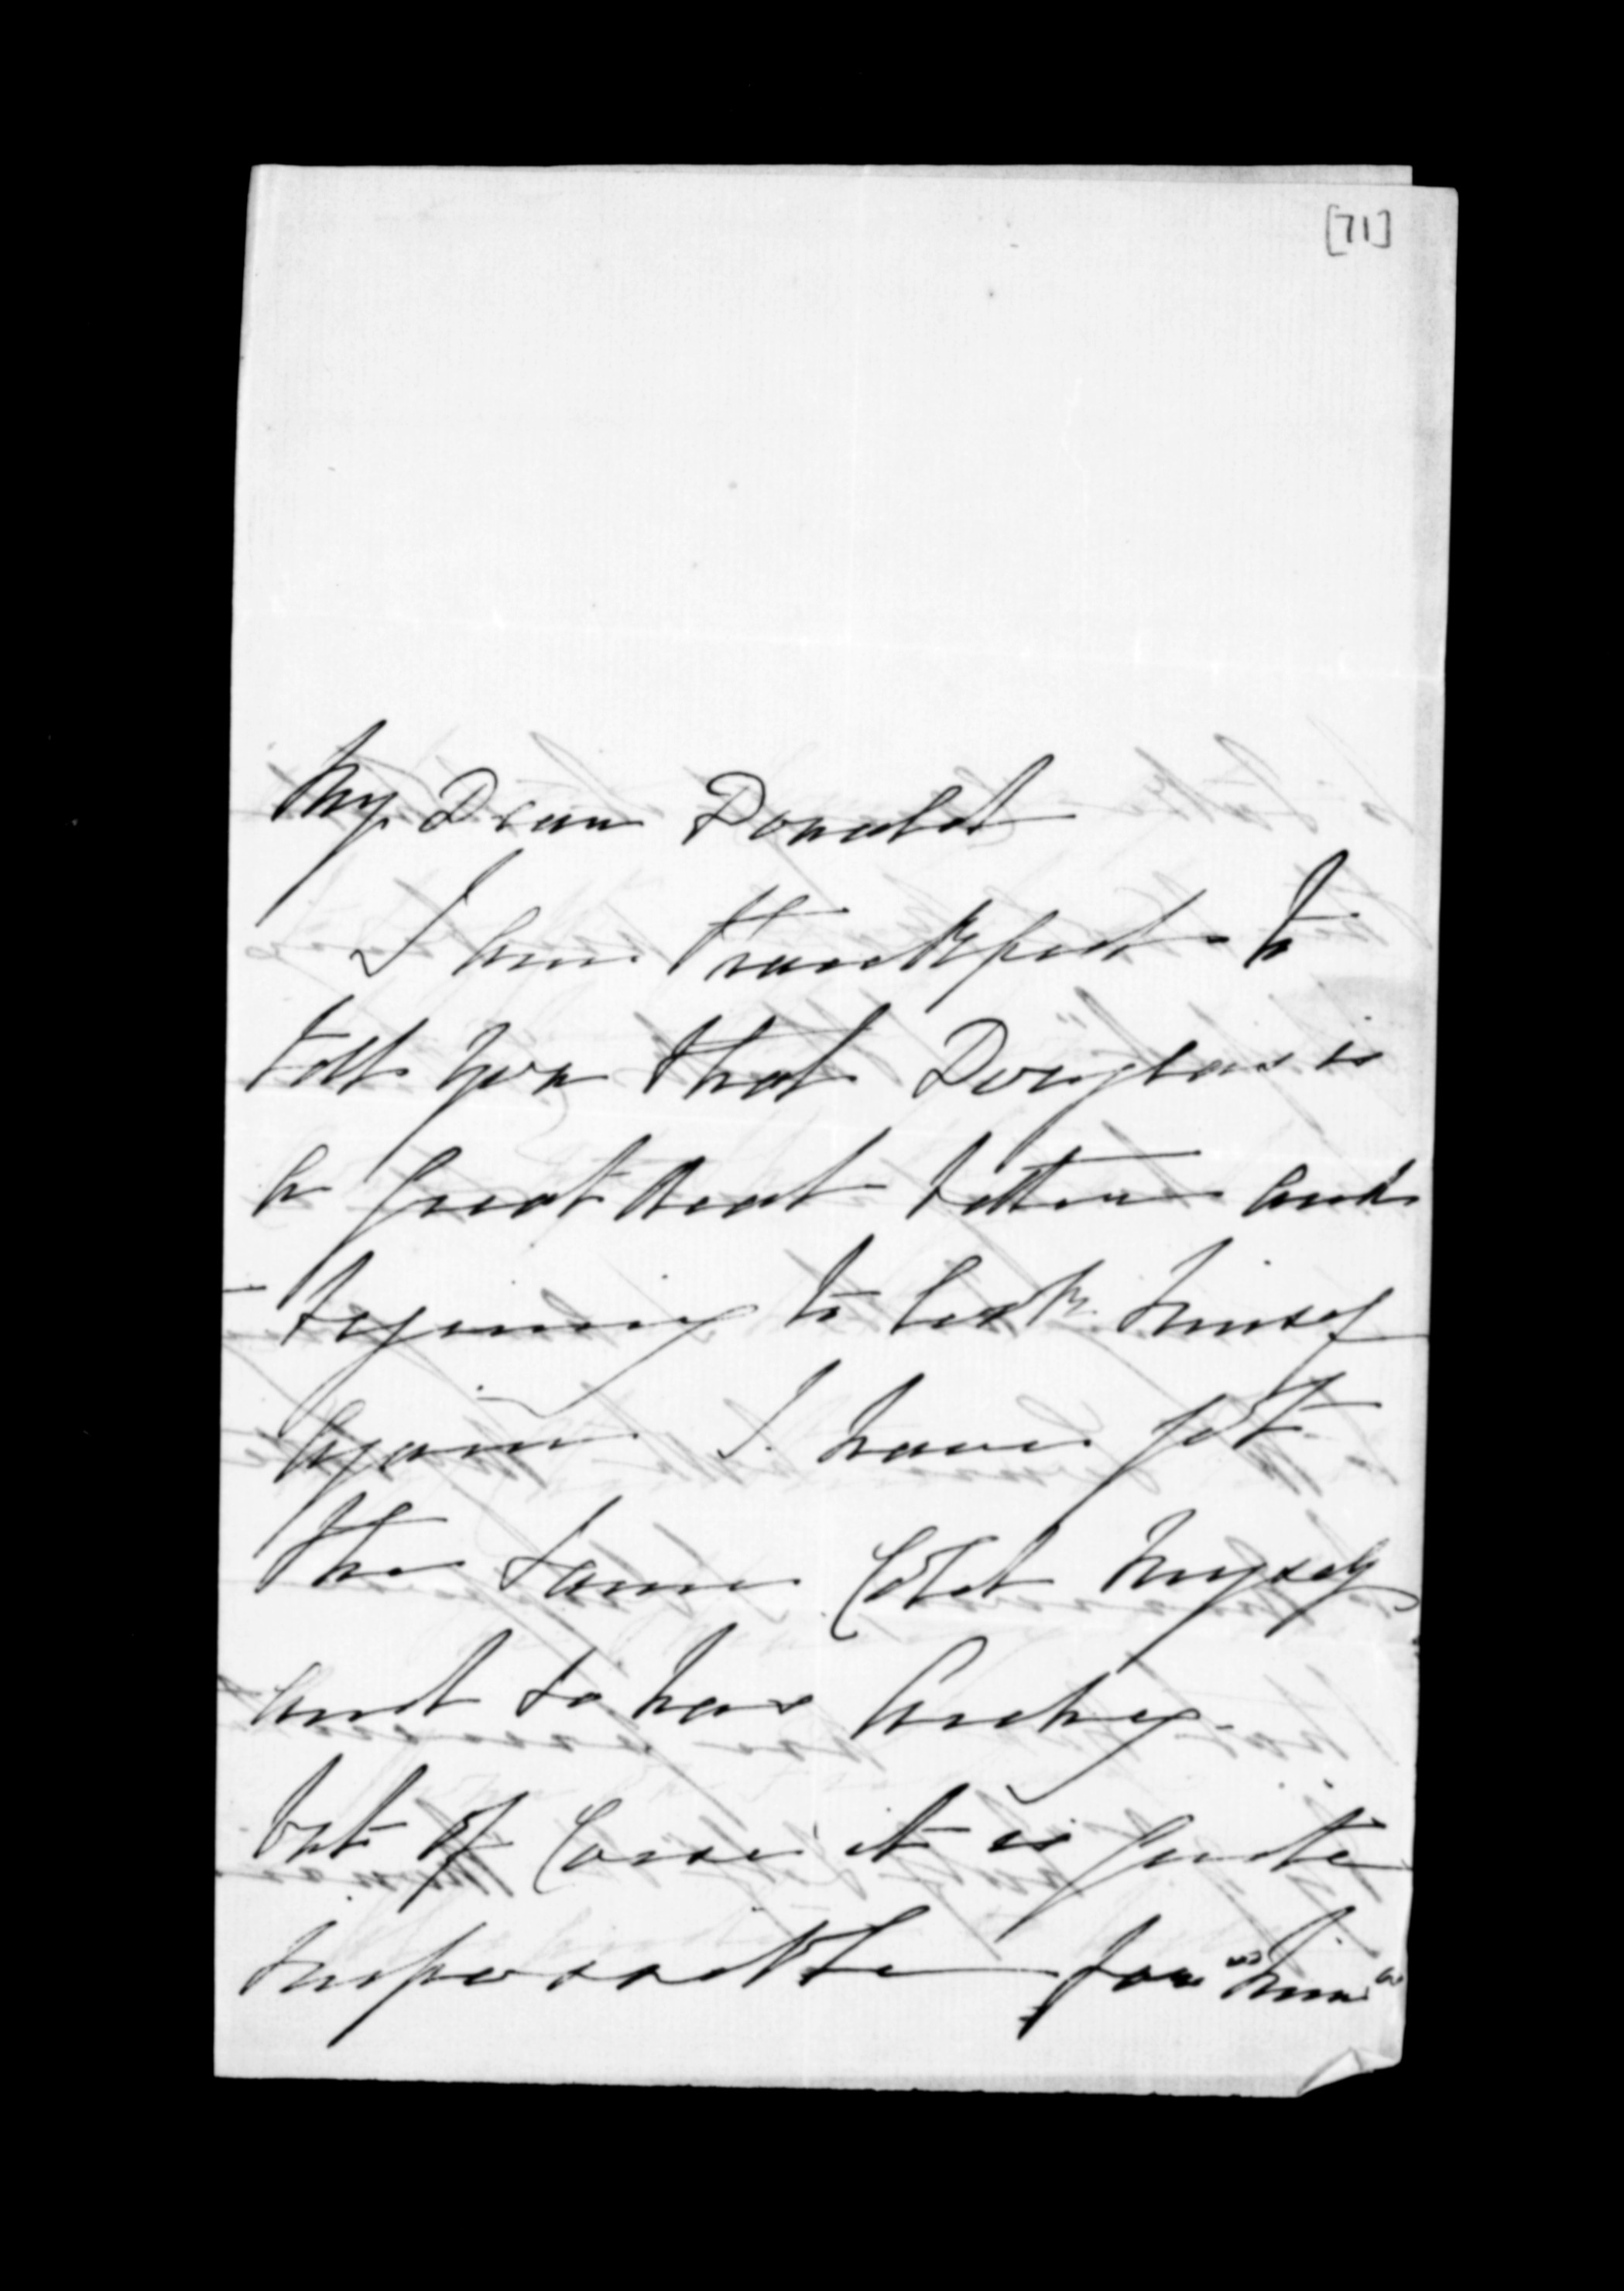 [71]
My Dear Donald
I am thankful to
tell you that Douglas is
a great deal better and
begining to look himself
again I have got
the same Cold myself
and so has Archy.
but of Corse it is quite
impossible for "him"